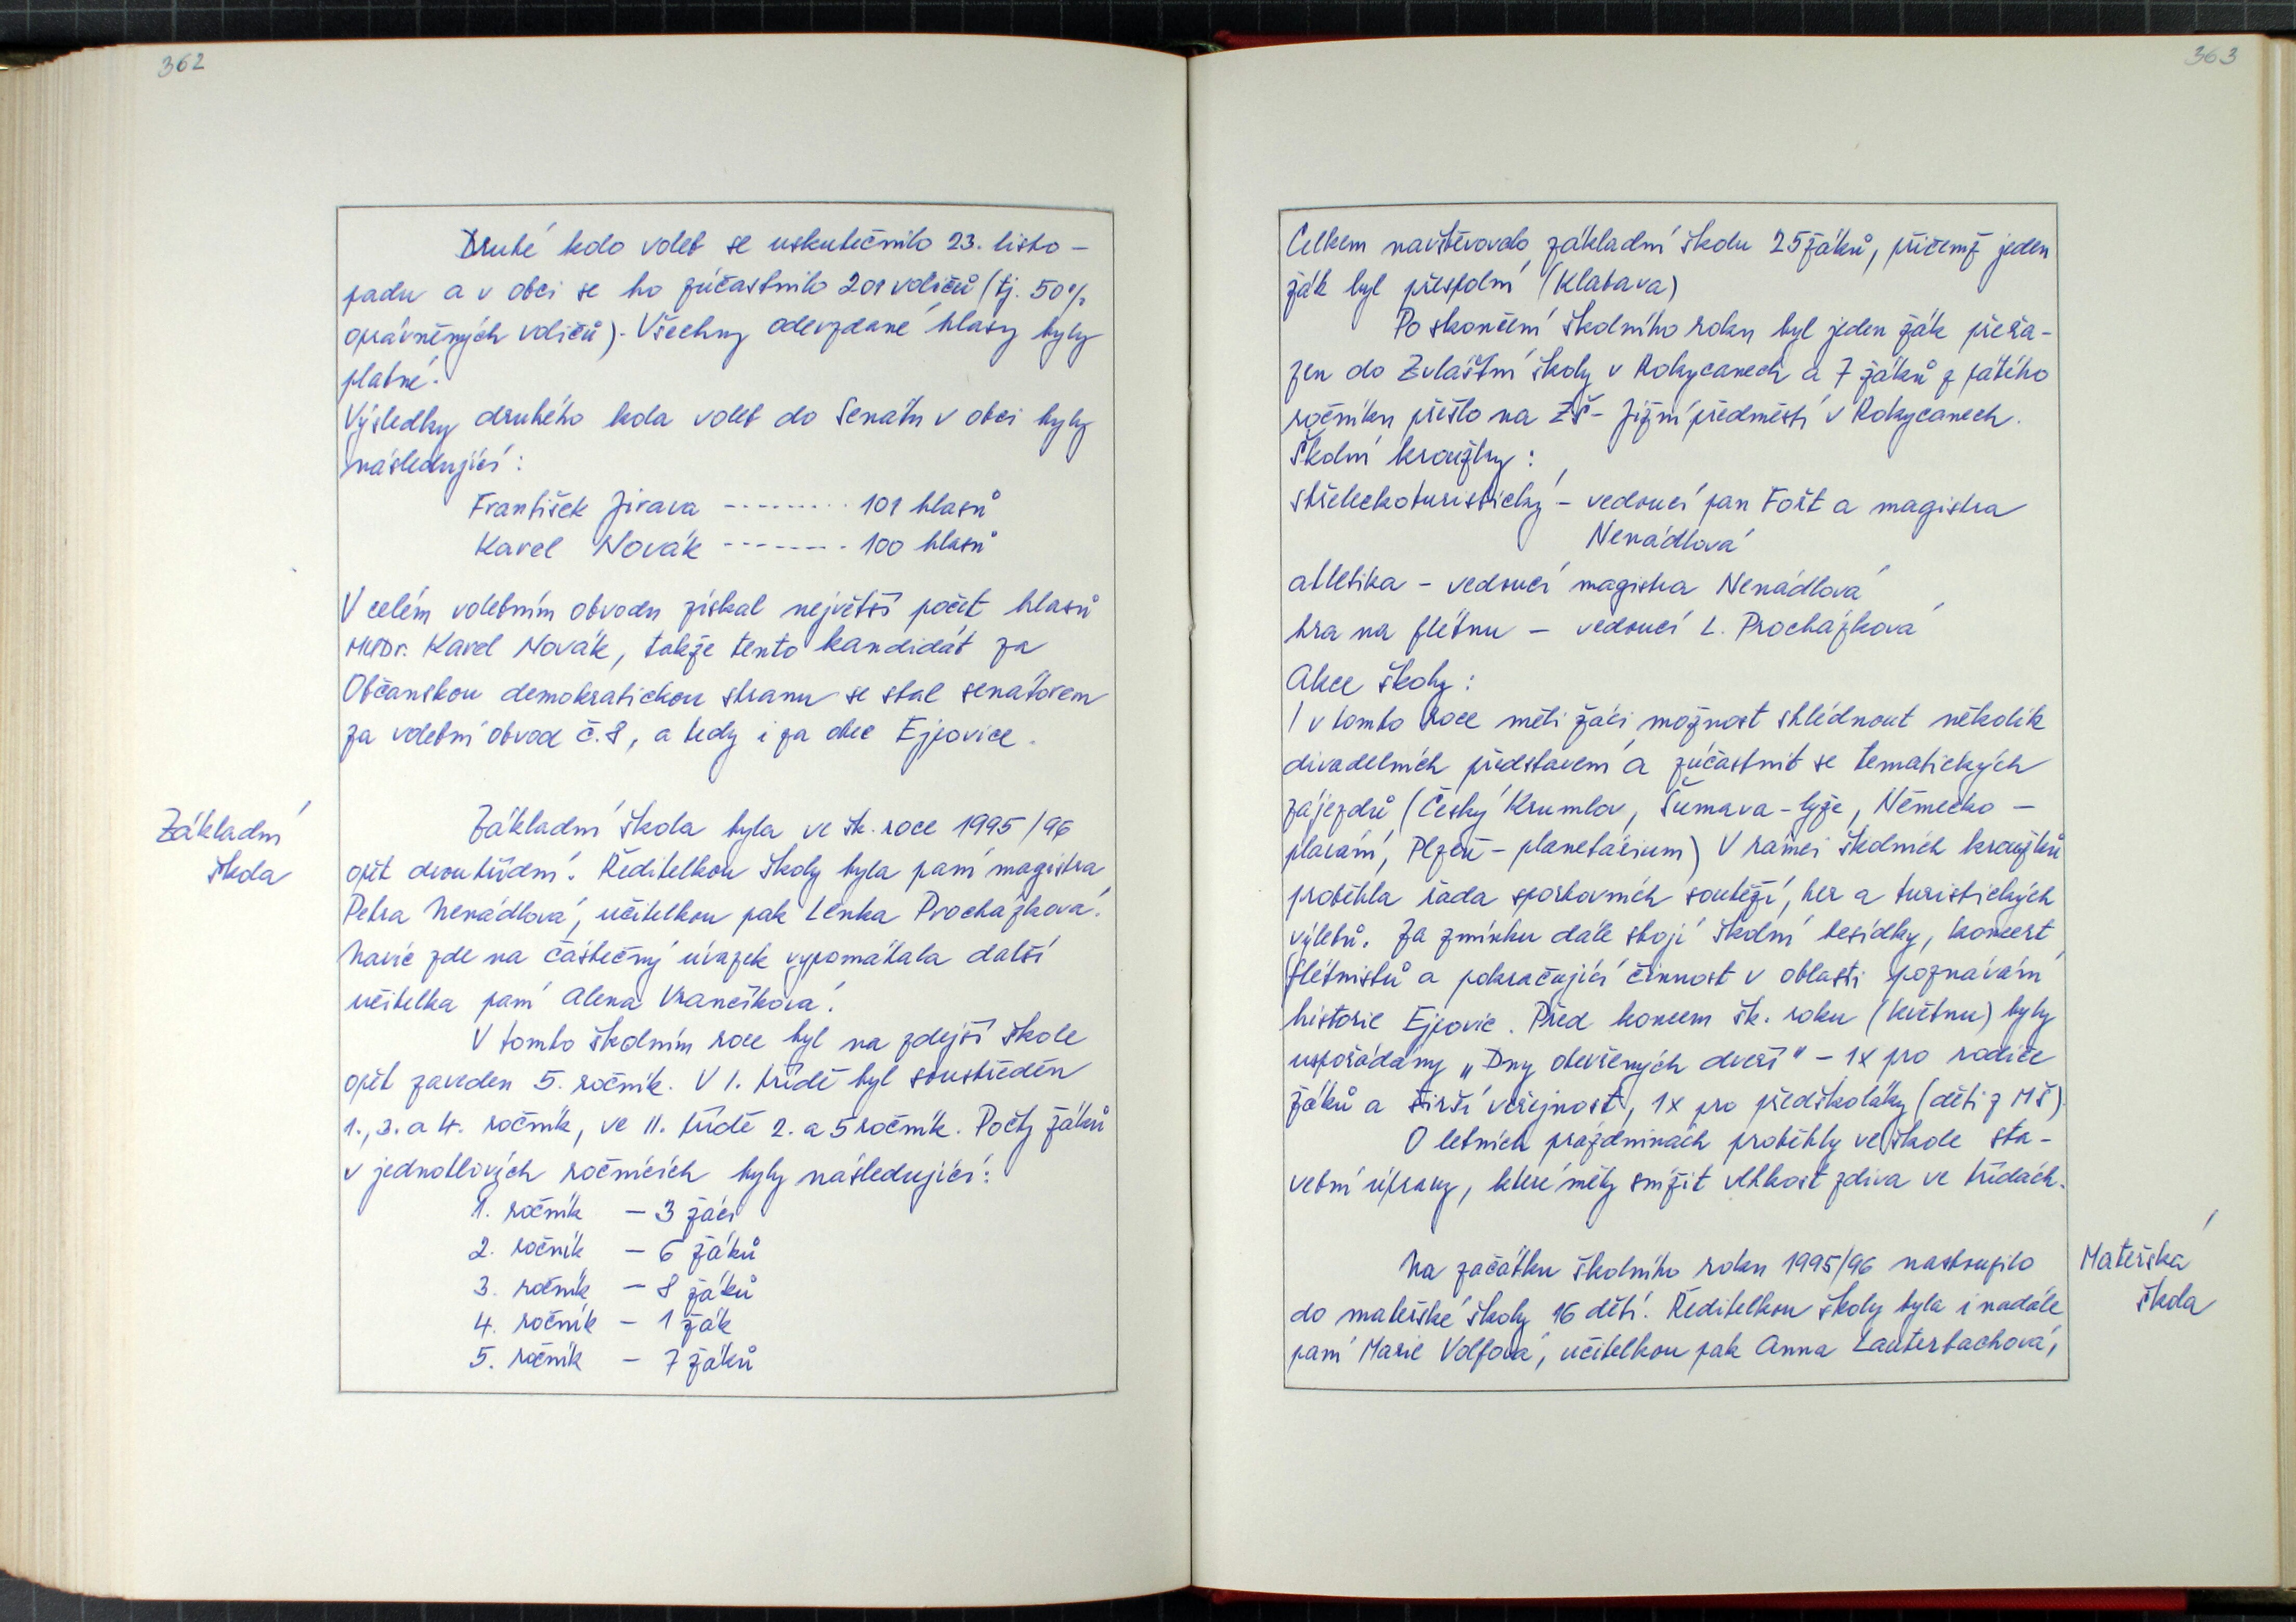 362
Druhé kolo voleb se uskutečnilo 23. listo-
padu a v obci se ho zúčastnilo 201 voličů (tj. 50%
oprávněných voličů). Všechny odevzdané hlasy byly
platné.
Výsledky druhého kola voleb do Senátu v obci byly
následující:
František Jirava --------- 101 hlasů
Karel Novák -------- 100 hlasů
V celém volebním obvodu získal největší počet hlasů
MUDr. Karel Novák, takže tento kandidát za
Občanskou demokratickou stranu se stal senátorem
za volební obvod č. 8, a tedy i za obec Ejpovice.
Základní
škola
Základní škola byla ve šk. roce 1995/96
opět dvoutřídní. Ředitelkou školy byla paní magistra
Petra Nenádlová, učitelkou pak Lenka Procházková.
Navíc zde na částečný úvazek vypomáhala další
učitelka paní Alena Vrančíková.
V tomto školním roce byl na zdejší škole
opět zaveden 5. ročník. V I. třídě byl soustředěn
1., 3. a 4. ročník, ve II. třídě 2. a 5 ročník. Počty žáků
v jednotlivých ročnících byly následující:
1. ročník – 3 žáci
2. ročník – 6 žáků
3. ročník – 8 žáků
4. ročník – 1 žák
5. ročník – 7 žáků
363
Celkem navštěvovalo základní školu 25 žáků, přičemž jeden
žák byl přespolní (Klabava)
Po skončení školního roku byl jeden žák přeřa-
zen do Zvláštní školy v Rokycanech a 7 žáků z pátého
ročníku přešlo na ZŠ - Jižní předměstí v Rokycanech.
Školní kroužky:
střeleckoturistický – vedoucí pan Fořt a magistra
Nenádlová
atletika – vedoucí magistra Nenádlová
hra na flétnu – vedoucí L. Procházková
Akce školy:
I v tomto roce měli žáci možnost shlédnout několik
divadelních představení a zúčastnit se tematických
zájezdů (Český Krumlov, Šumava - lyže, Německo –
plavání, Plzeň - planetárium) V rámci školních kroužků
proběhla řada sportovních soutěží, her a turistických
výletů. Za zmínku dále stojí školní besídky, koncert
flétnistů a pokračující činnost v oblasti poznávání
historie Ejpovic. Před koncem šk. roku (květnu) byly
uspořádány „Dny otevřených dveří" – 1x pro rodiče
žáků a širší veřejnost, 1x pro předškoláky (děti z MŠ).
O letních prázdninách proběhly ve škole sta-
vební úpravy, které měly snížit vlhkost zdiva ve třídách.
Mateřská
škola
Na začátku školního roku 1995/96 nastoupilo
do mateřské školy 16 dětí. Ředitelkou školy byla i nadále
paní Marie Volfová, učitelkou pak Anna Lauterbachová,